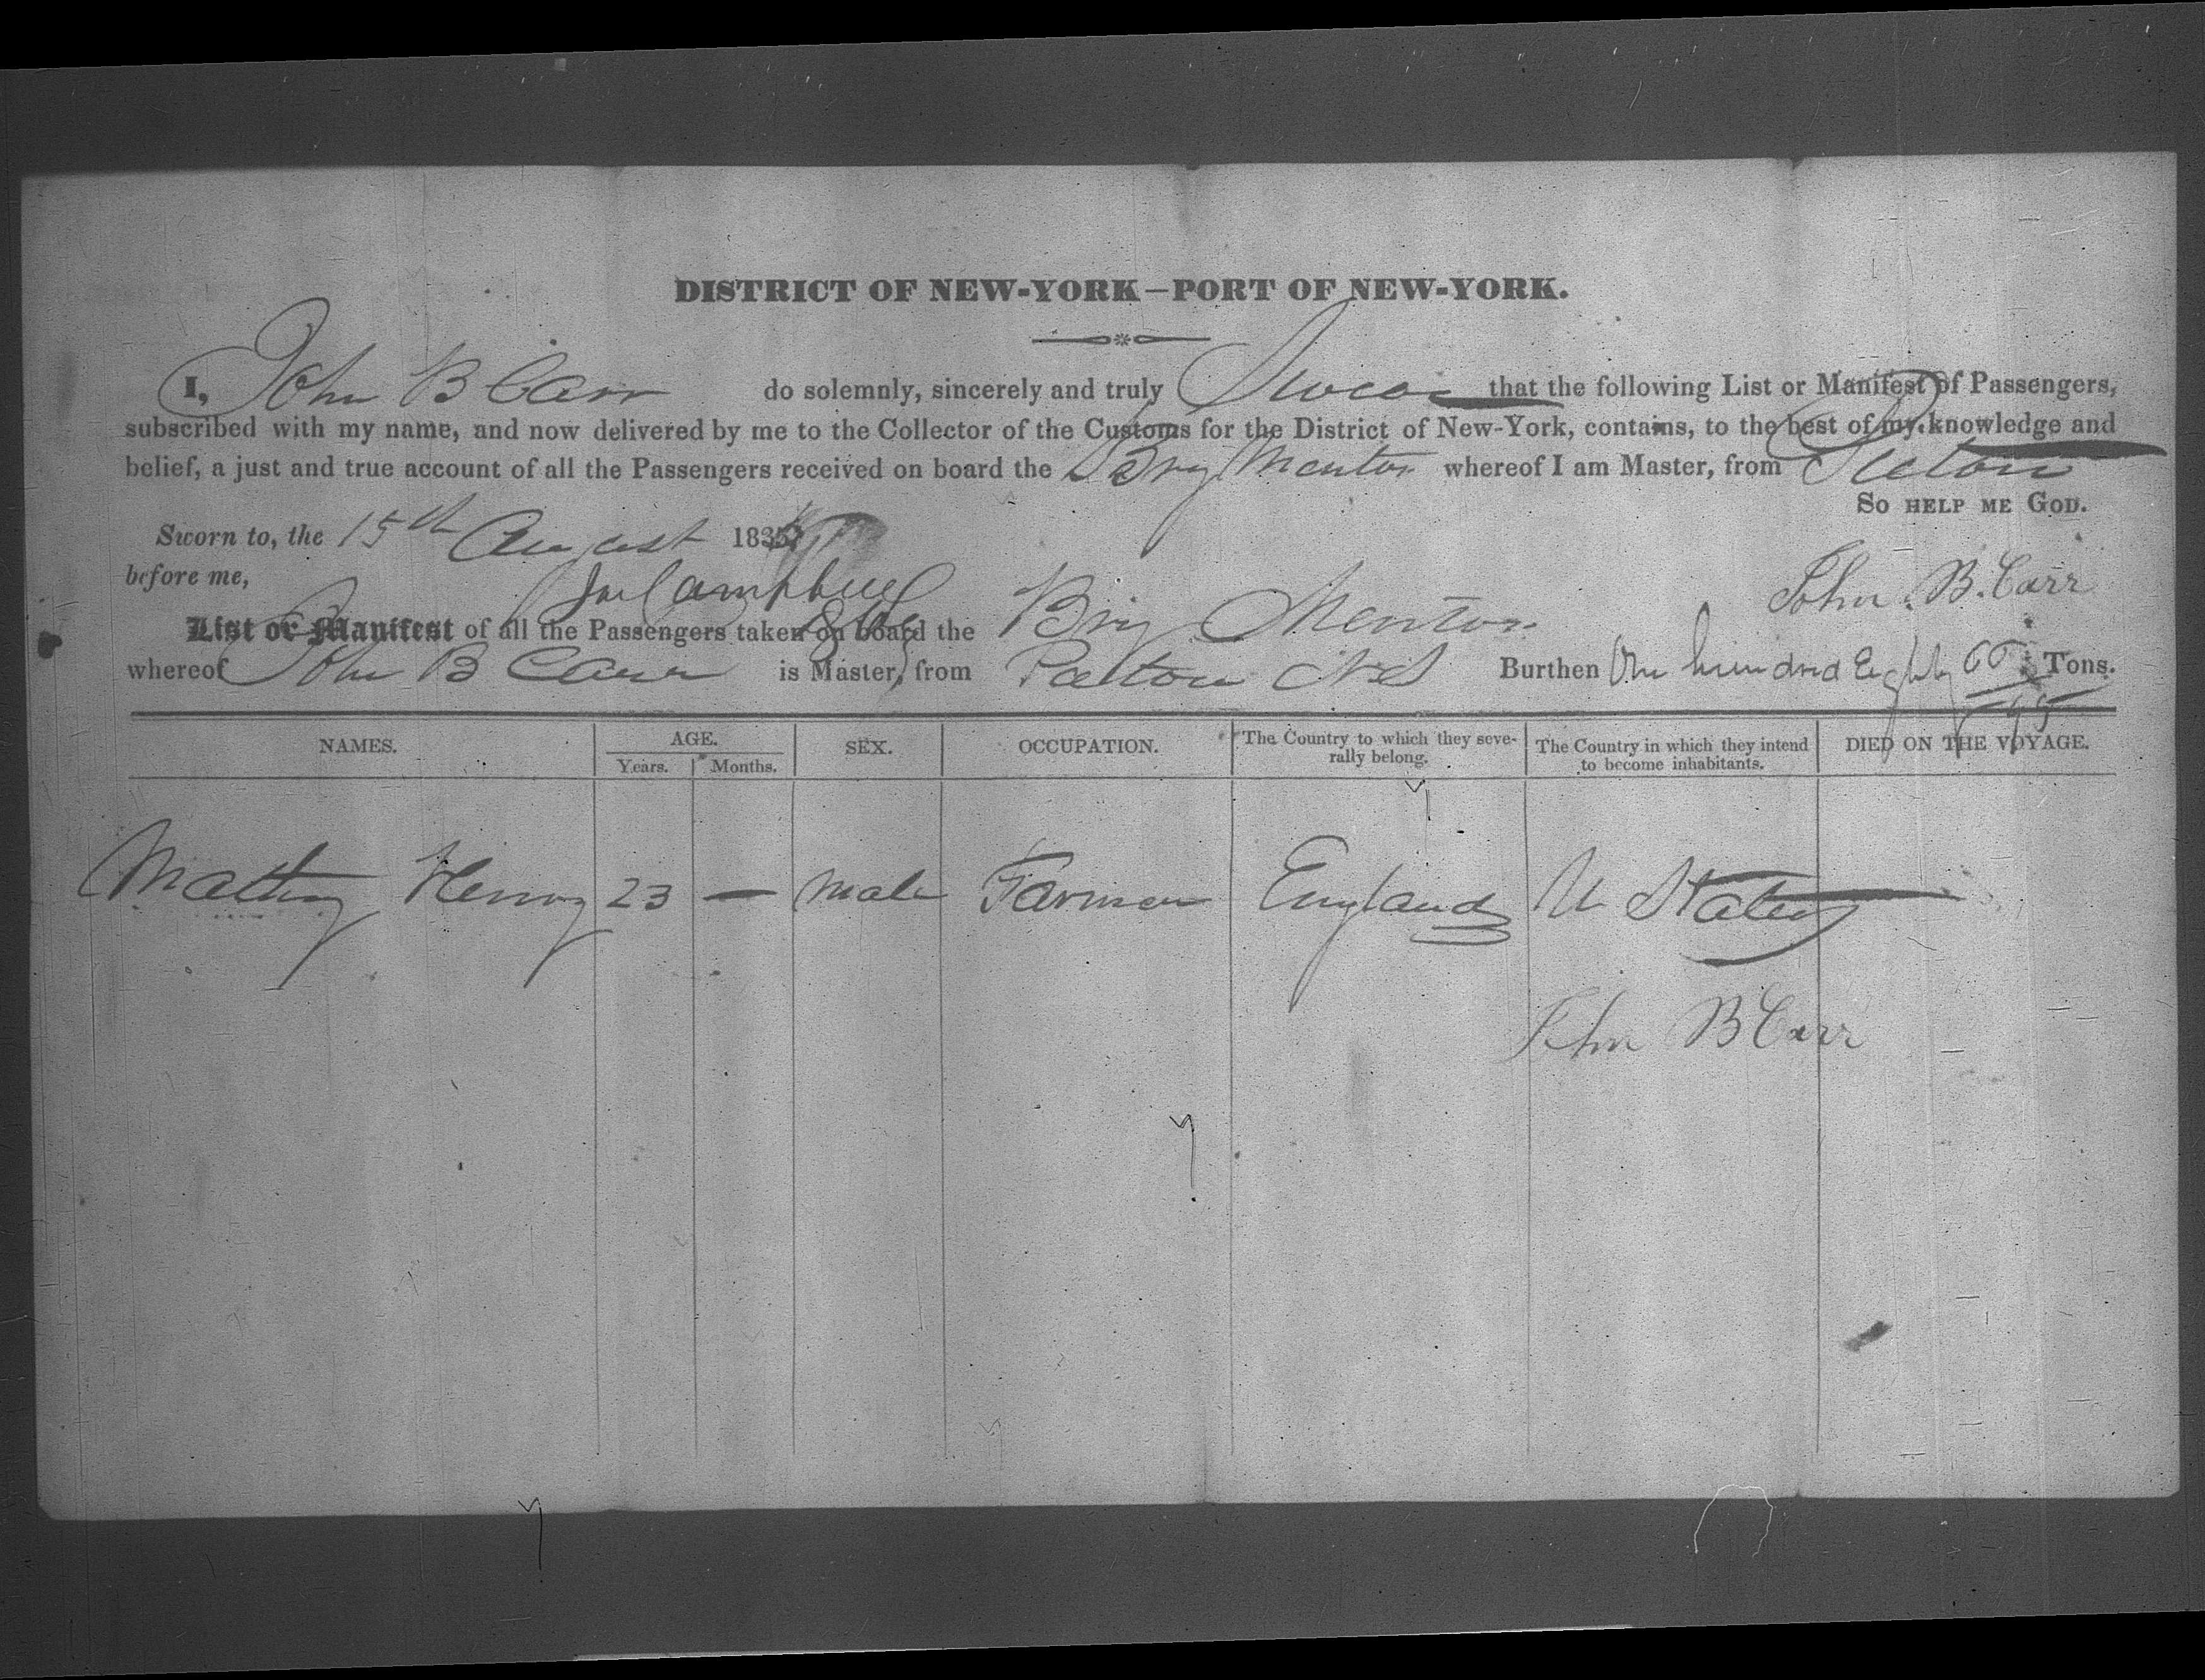 DISTRICT OF NEW-YORK—PORT OF NEW-YORK.
I, John B Carr do solemnly, sincerely and truly Swear that the following List or Manifest of Passengers,
subscribed with my name, and now delivered by me to the Collector of the Customs for the District of New-York, contains, to the best of my knowledge and
belief, a just and true account of all the Passengers received on board the Brig Mentor whereof I am Master, from Picton
SO HELP ME GOD.
Sworn to, the 15th August 183
before me, Campbell John. B. Carr
List or Manifest of all the Passengers taken on board the Brig Mentor
whereof John B Carr is Master, from Picton NS Burthen One hundred Eighty Tons.
95
NAMES. AGE. SEX. OCCUPATION. The Country to which they seve-rally belong. The Country in which they intend to become inhabitants. DIED ON THE VOYAGE.
Years. Months.
Henry 23 — Male Farmer England U States
John B Carr